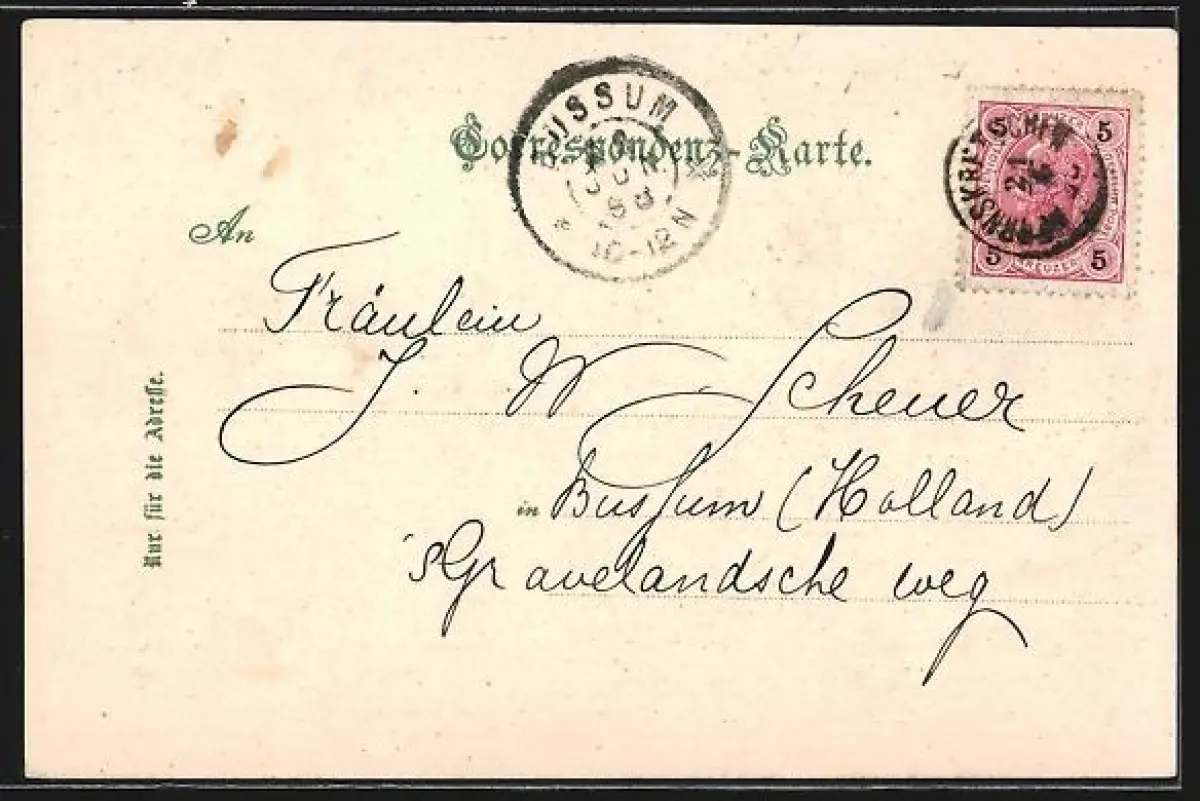 Correspondenz-Karte.
BUSSUM
10-12 N
5 5
5 5
KREUZER
21
An
Fräulein
J. W Scheuer
in Bussum (Holland)
's Gravelandsche weg
Nur für die Adresse.